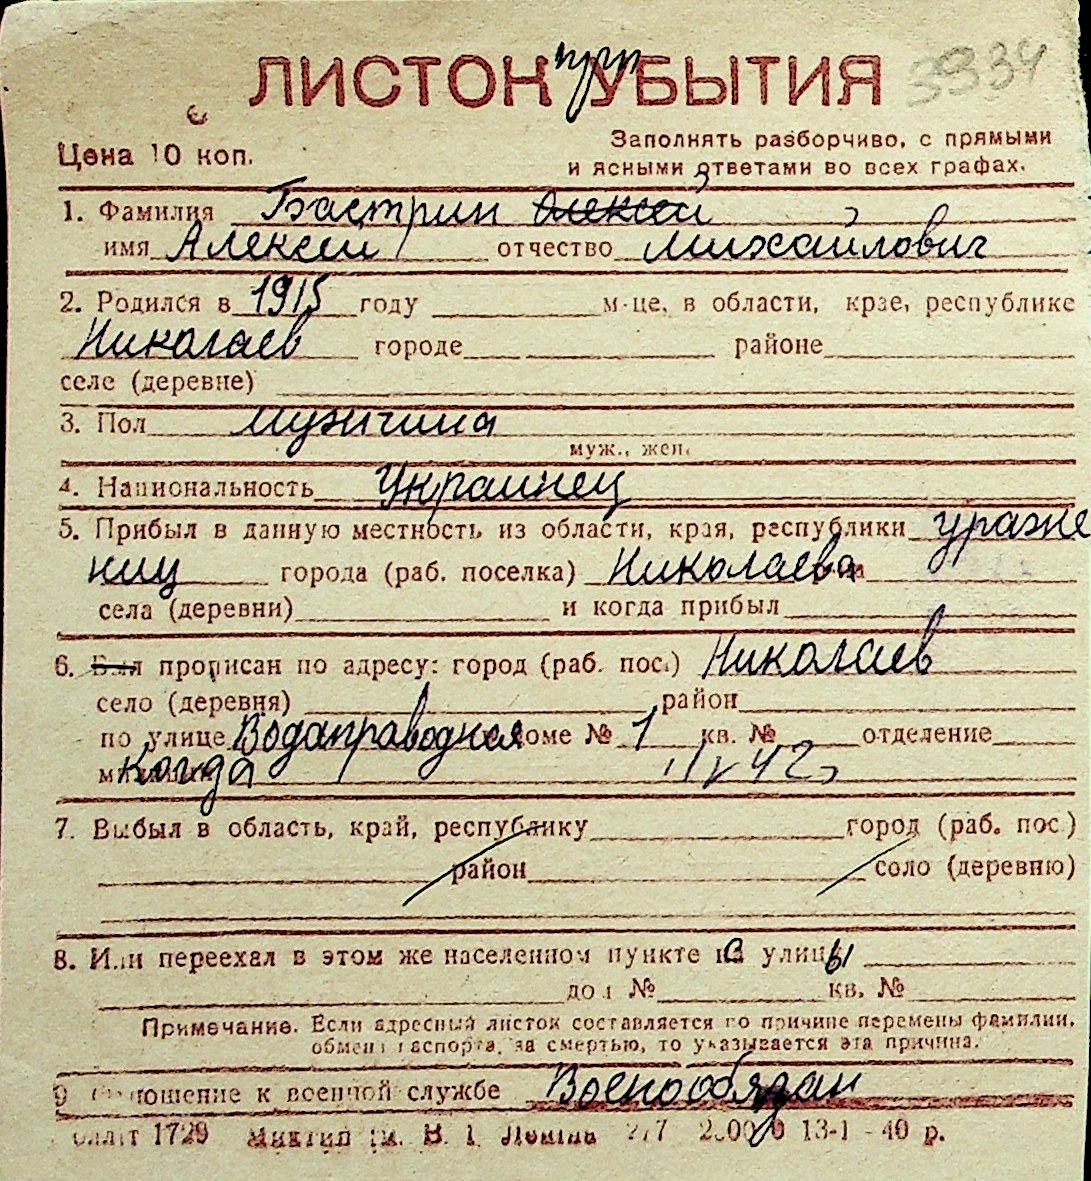 ЛИСТОК при УБЫТИЯ 3934
Цена 10 коп.
Заполнять разборчиво, с прямыми
и ясными ответами во всех графах.
1. Фамилия Бастрин Алексей
имя Алексей отчество Михайлович
2. Родился в 1915 году м-це, в области, крае, республике
Николаев городе районе
селе (деревне)
3. Пол Мужчина
муж., жен.
4. Национальность Украинец
5. Прибыл в данную местность из области, края, республики уроже
ниц города (раб. поселка) Николаева
села (деревни) и когда прибыл
6. Был прописан по адресу: город (раб. пос.) Николаев
село (деревня) район
по улице Водаправодная доме № 1 кв. № отделение
Когда 42
7. Выбыл в область, край, республику город (раб. пос.)
район село (деревню)
8. Или переехал в этом же населенном пункте с улицы
дом № кв. №
Примечание. Если адресный листок составляется по причине перемены фамилии,
обмена паспорта, за смертью, то указывается эта причина.
9 Отношение к военной службе Военообязан
1729 В. И. Ленина 13-1-40 р.